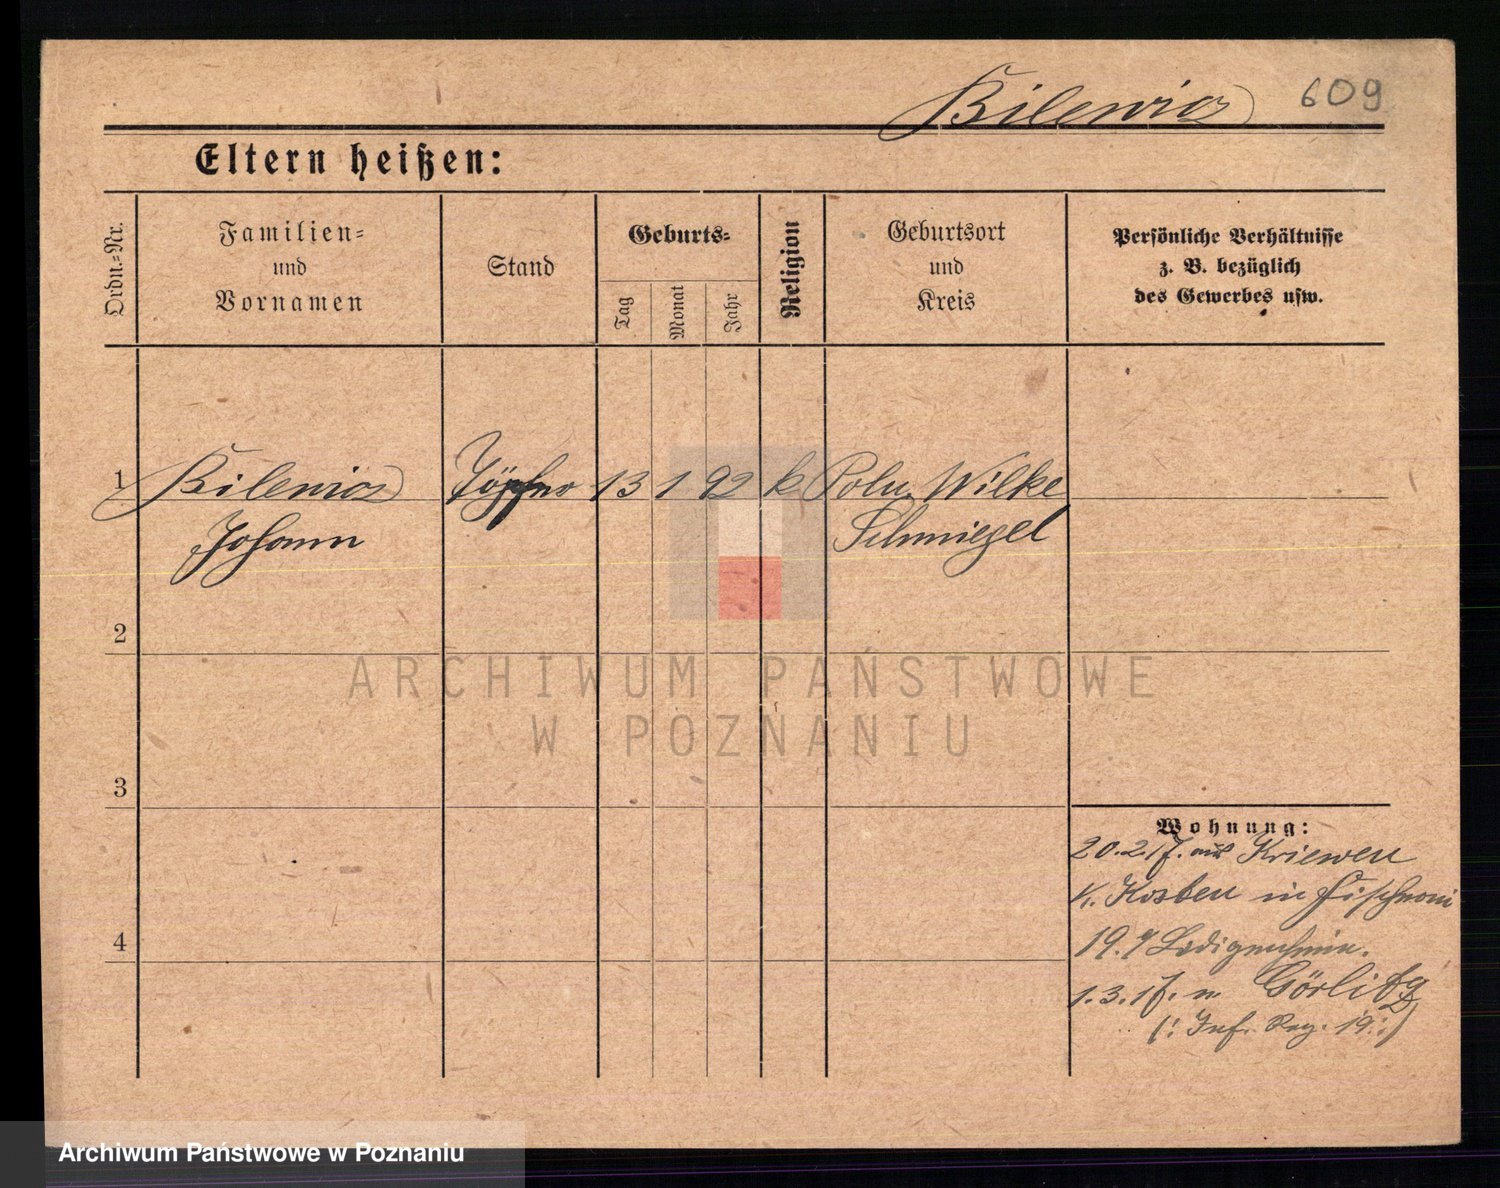 Bilewicz 609
Eltern heißen:
Ordn.-Nr.
Familien-
und
Vornamen
Stand
Geburts-
Tag
Monat
Jahr
Religion
Geburtsort
und
Kreis
Persönliche Verhältnisse
z. B. bezüglich
des Gewerbes usw.
1 Bilewicz Töpfer 13 1 92 k Poln. Wilke
Johann Schmiegel
2
3
4
Wohnung:
20.2.17. aus Kriewen
K. Kosten in
19.
1.3.17. n Görlitz
(: Inf. Reg. 19 :)
ARCHIWUM PAŃSTWOWE
W POZNANIU
Archiwum Państwowe w Poznaniu